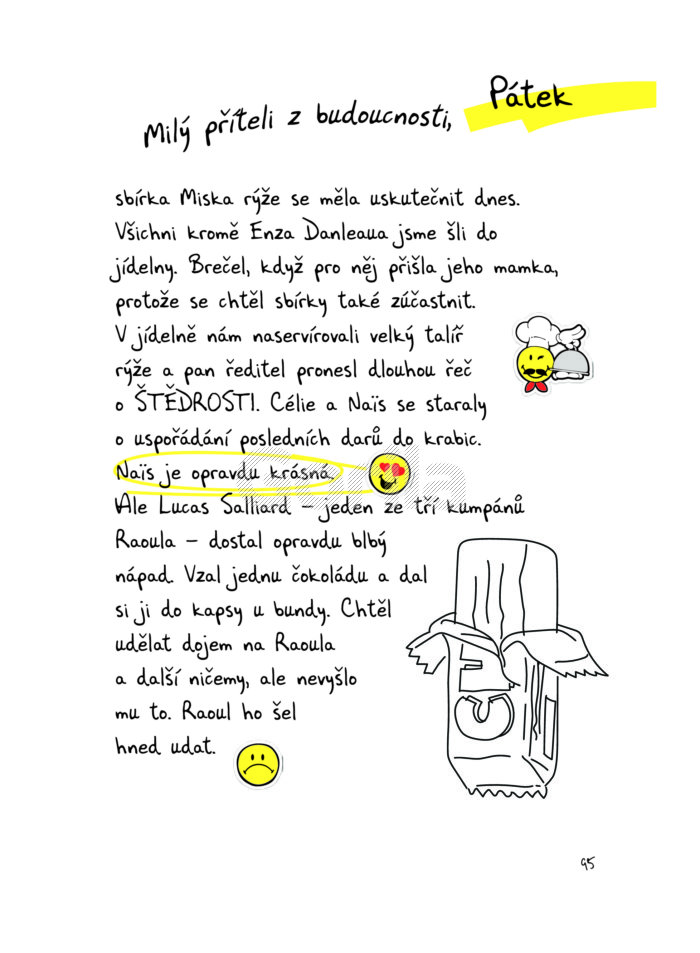 Pátek
Milý příteli z budoucnosti,
sbírka Miska rýže se měla uskutečnit dnes.
Všichni kromě Enza Danleaua jsme šli do
jídelny. Brečel, když pro něj přišla jeho mamka,
protože se chtěl sbírky také zúčastnit.
V jídelně nám naservírovali velký talíř
rýže a pan ředitel pronesl dlouhou řeč
o ŠTĚDROSTI. Célie a Naïs se staraly
o uspořádání posledních darů do krabic.
Naïs je opravdu krásná.
Ale Lucas Salliard – jeden ze tří kumpánů
Raoula – dostal opravdu blbý
nápad. Vzal jednu čokoládu a dal
si ji do kapsy u bundy. Chtěl
udělat dojem na Raoula
a další ničemy, ale nevyšlo
mu to. Raoul ho šel
hned udat.
95